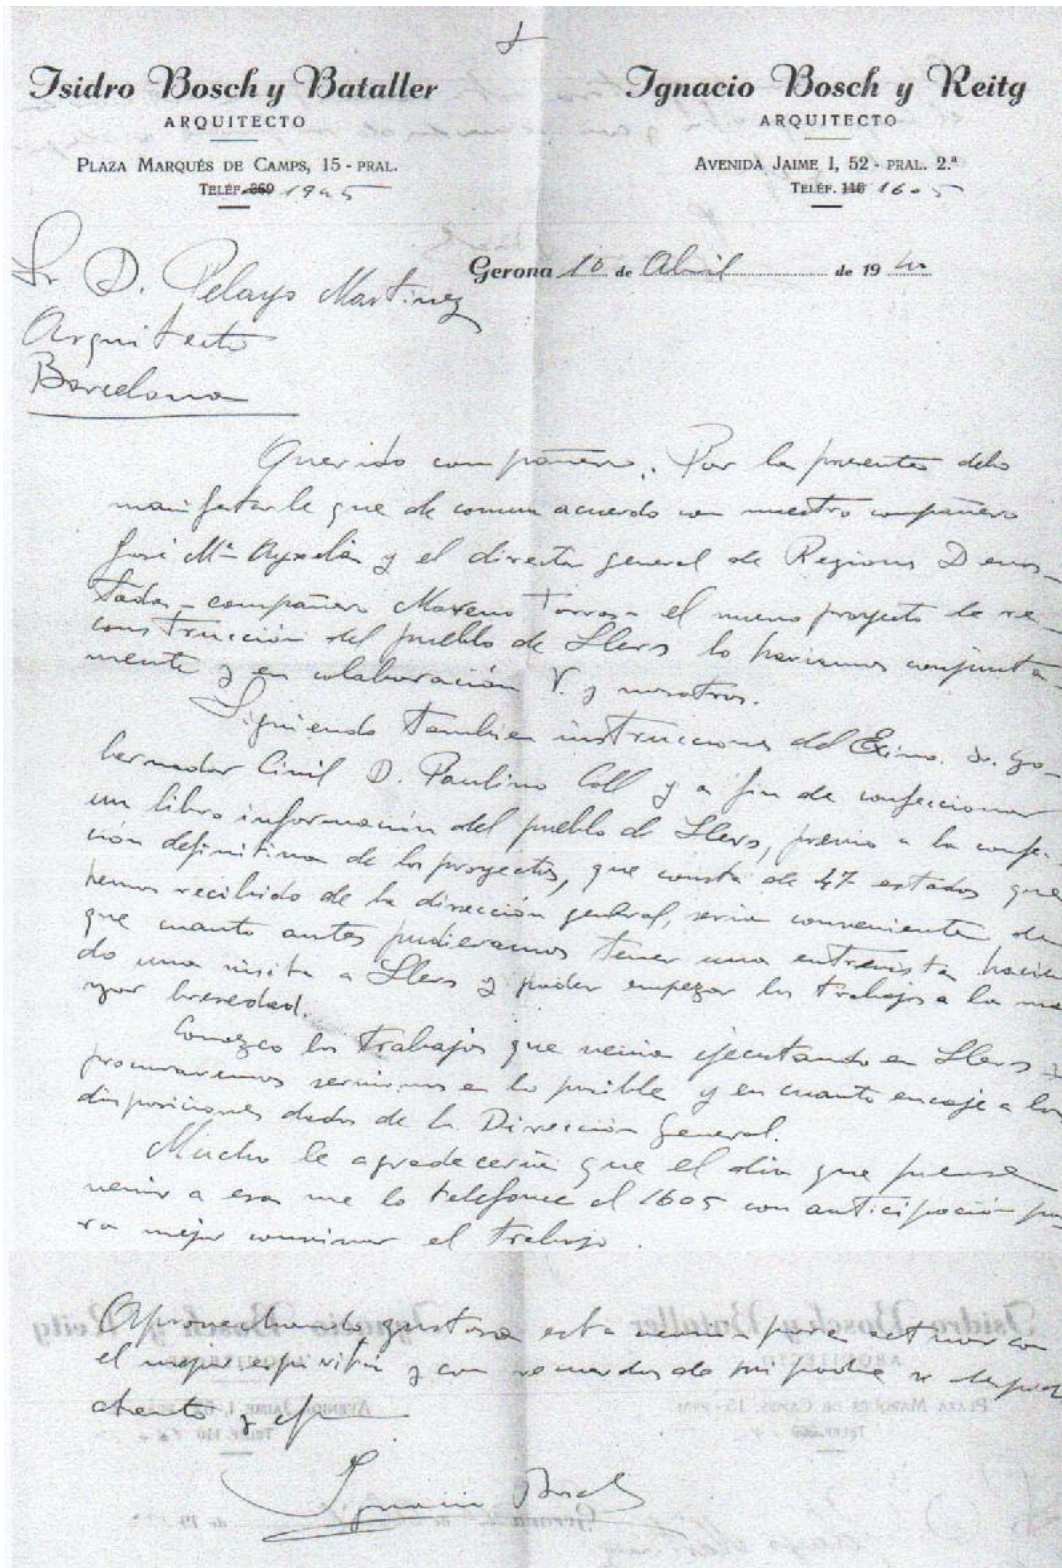 Isidro Bosch y Bataller
ARQUITECTO
PLAZA MARQUÉS DE CAMPS, 15 - PRAL.
TELÉF. 869 1945
Ignacio Bosch y Reitg
ARQUITECTO
AVENIDA JAIME I, 52 - PRAL. 2.ª
TELÉF. 110 1605
Gerona 10 de Abril de 19
Sr D. Pelayo Martinez
Arquitecto
Barcelona
Querido compañero. Por la presente debo
manifestarle que de comun acuerdo con nuestro compañero
José Mª Ayxelá y el director general de Regiones Devas-
tadas - compañero Moreno Torres - el nuevo proyecto de re-
construcción del pueblo de Llers lo hariamos conjunta-
mente y en colaboración V. y nosotros.
Siguiendo tambien instrucciones del Excmo. Sr. Go-
bernador Civil D. Paulino Coll y a fin de confeccionar
un libro información del pueblo de Llers, previo a la confec-
ción definitiva de los proyectos, que consta de 47 estados que
hemos recibido de la dirección general, seria conveniente de
que cuanto antes pudieramos tener una entrevista hacien
do una visita a Llers y poder empezar los trabajos a la ma
yor brevedad.
Conozco los trabajos que venia ejecutando en Llers y
procuraremos servirnos en lo posible y en cuanto encaje a las
disposiciones dadas de la Dirección General.
Mucho le agradeceria que el dia que piense
venir a esa me lo telefonee al 1605 con anticipación pa
ra mejor convinar el trabajo.
Aprovechando gustoso esta ocasion para actuar con
el mejor espiritu y con recuerdos de mi padre se despide
atento y
Ignacio Bosch